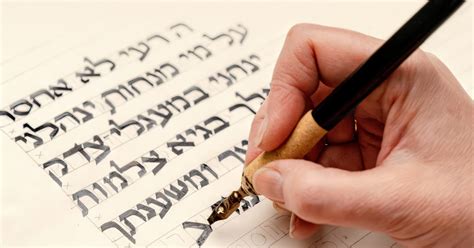 ה רעי לא אחסר
על מי מנחות ינהלני
ינחני במעגלי צדק
לך בגיא צלמות
ומשענתך